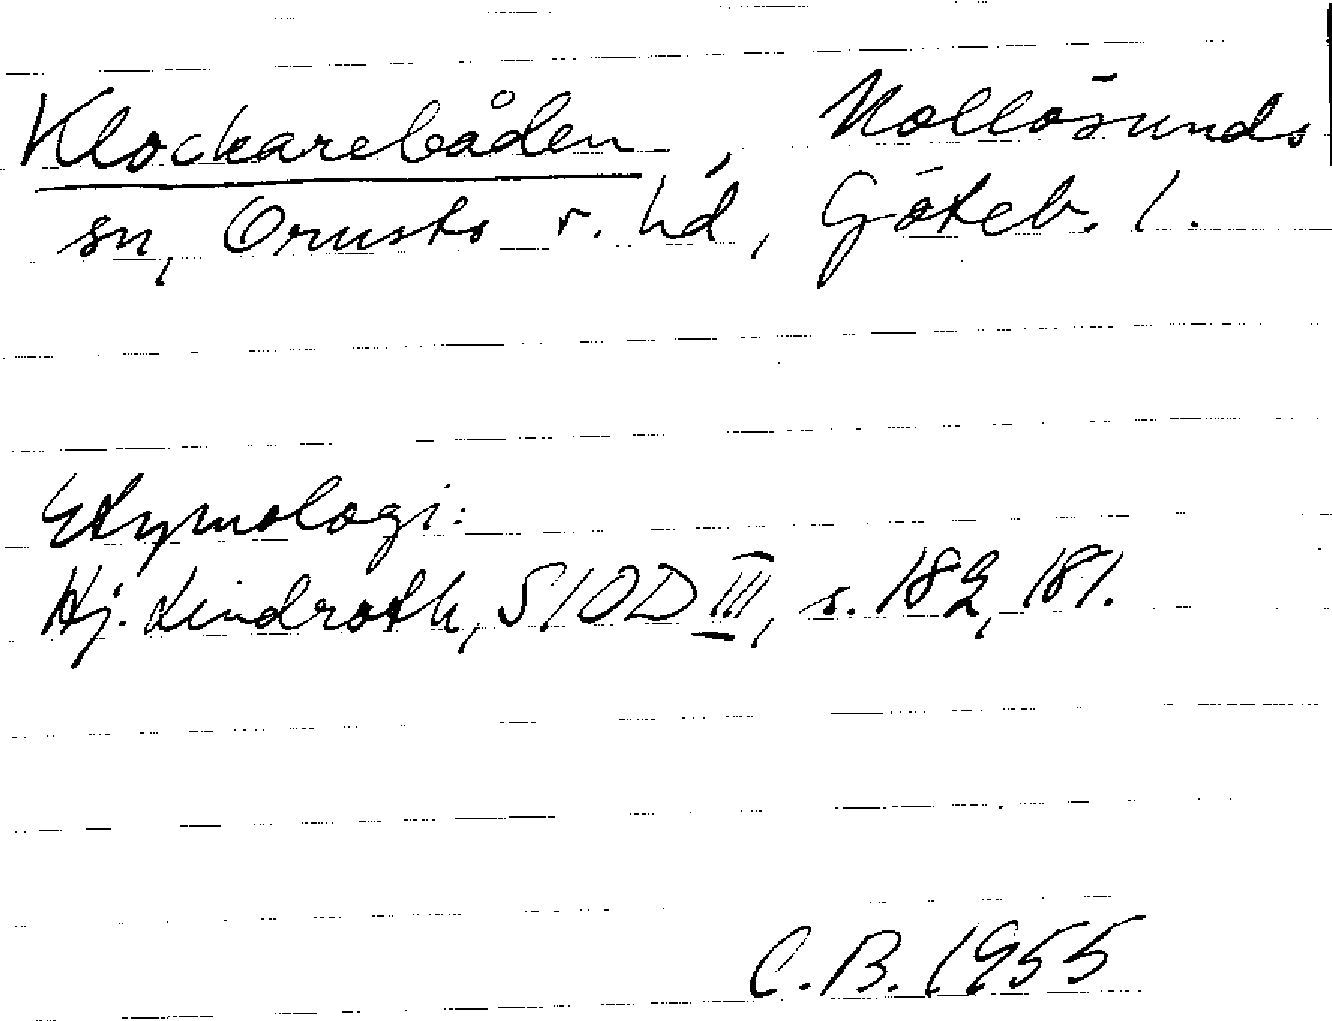 Klockarebåden, Mollösunds
sn, Orusts v. hd, Göteb. l.
Etymologi:
Hj. Lindroth, SIOD III, s. 182, 181.
C.B. 1955